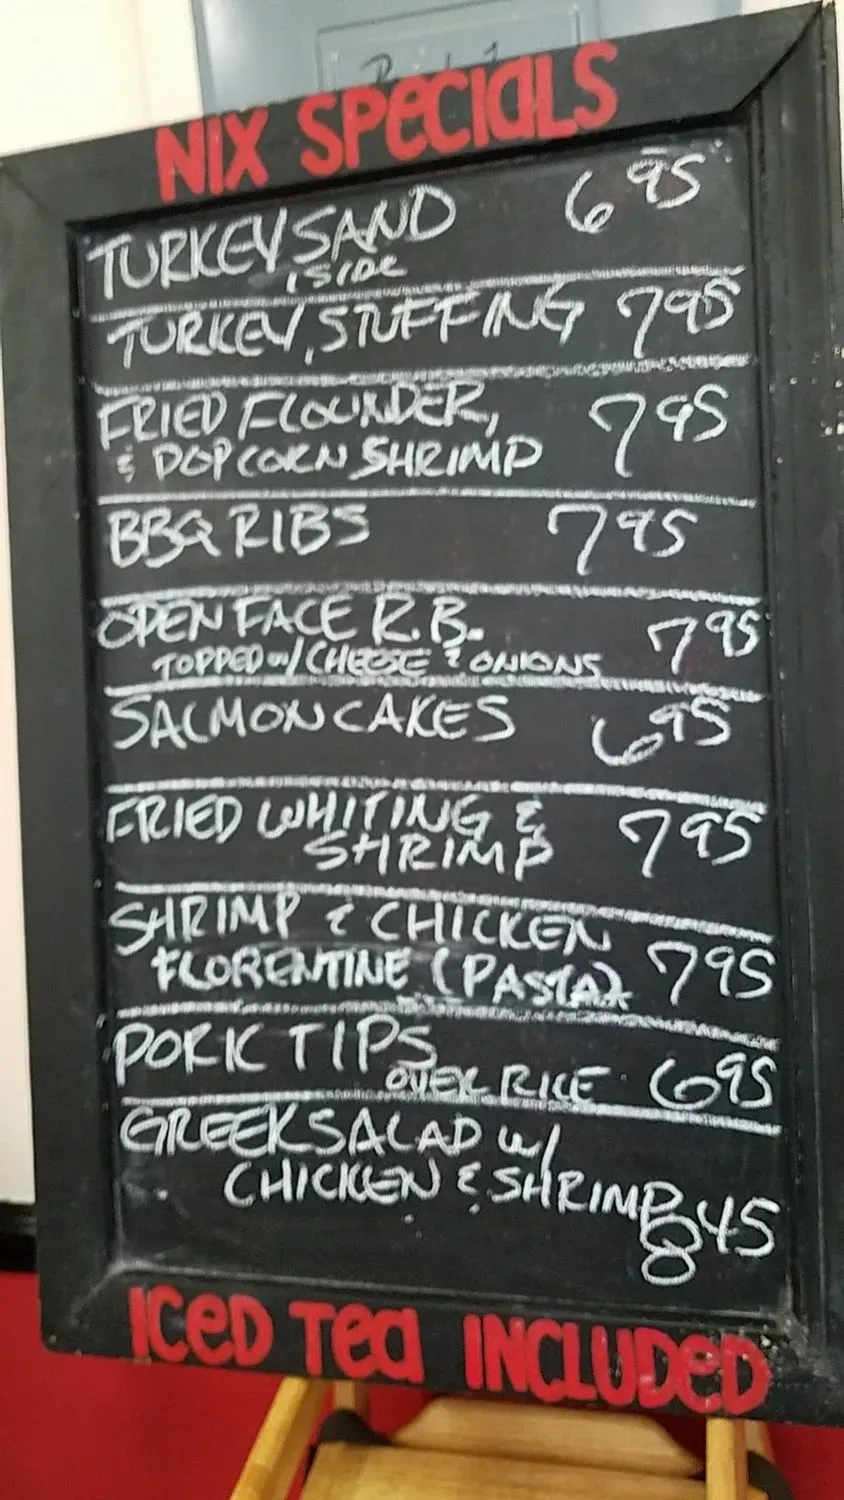 NIX SPECIALS
TURKEY SAND 6 95
1 SIDE
TURKEY, STUFFING 7 95
FRIED FLOUNDER, 7 95
& POPCORN SHRIMP
BBQ RIBS 7 95
OPEN FACE R.B. 7 95
TOPPED w/ CHEESE & ONIONS
SALMON CAKES 6 95
FRIED WHITING & 7 95
SHRIMP
SHRIMP & CHICKEN
FLORENTINE (PASTA) 7 95
PORK TIPS
OVER RICE 6 95
GREEK SALAD w/
CHICKEN & SHRIMP
8 45
ICED TEA INCLUDED